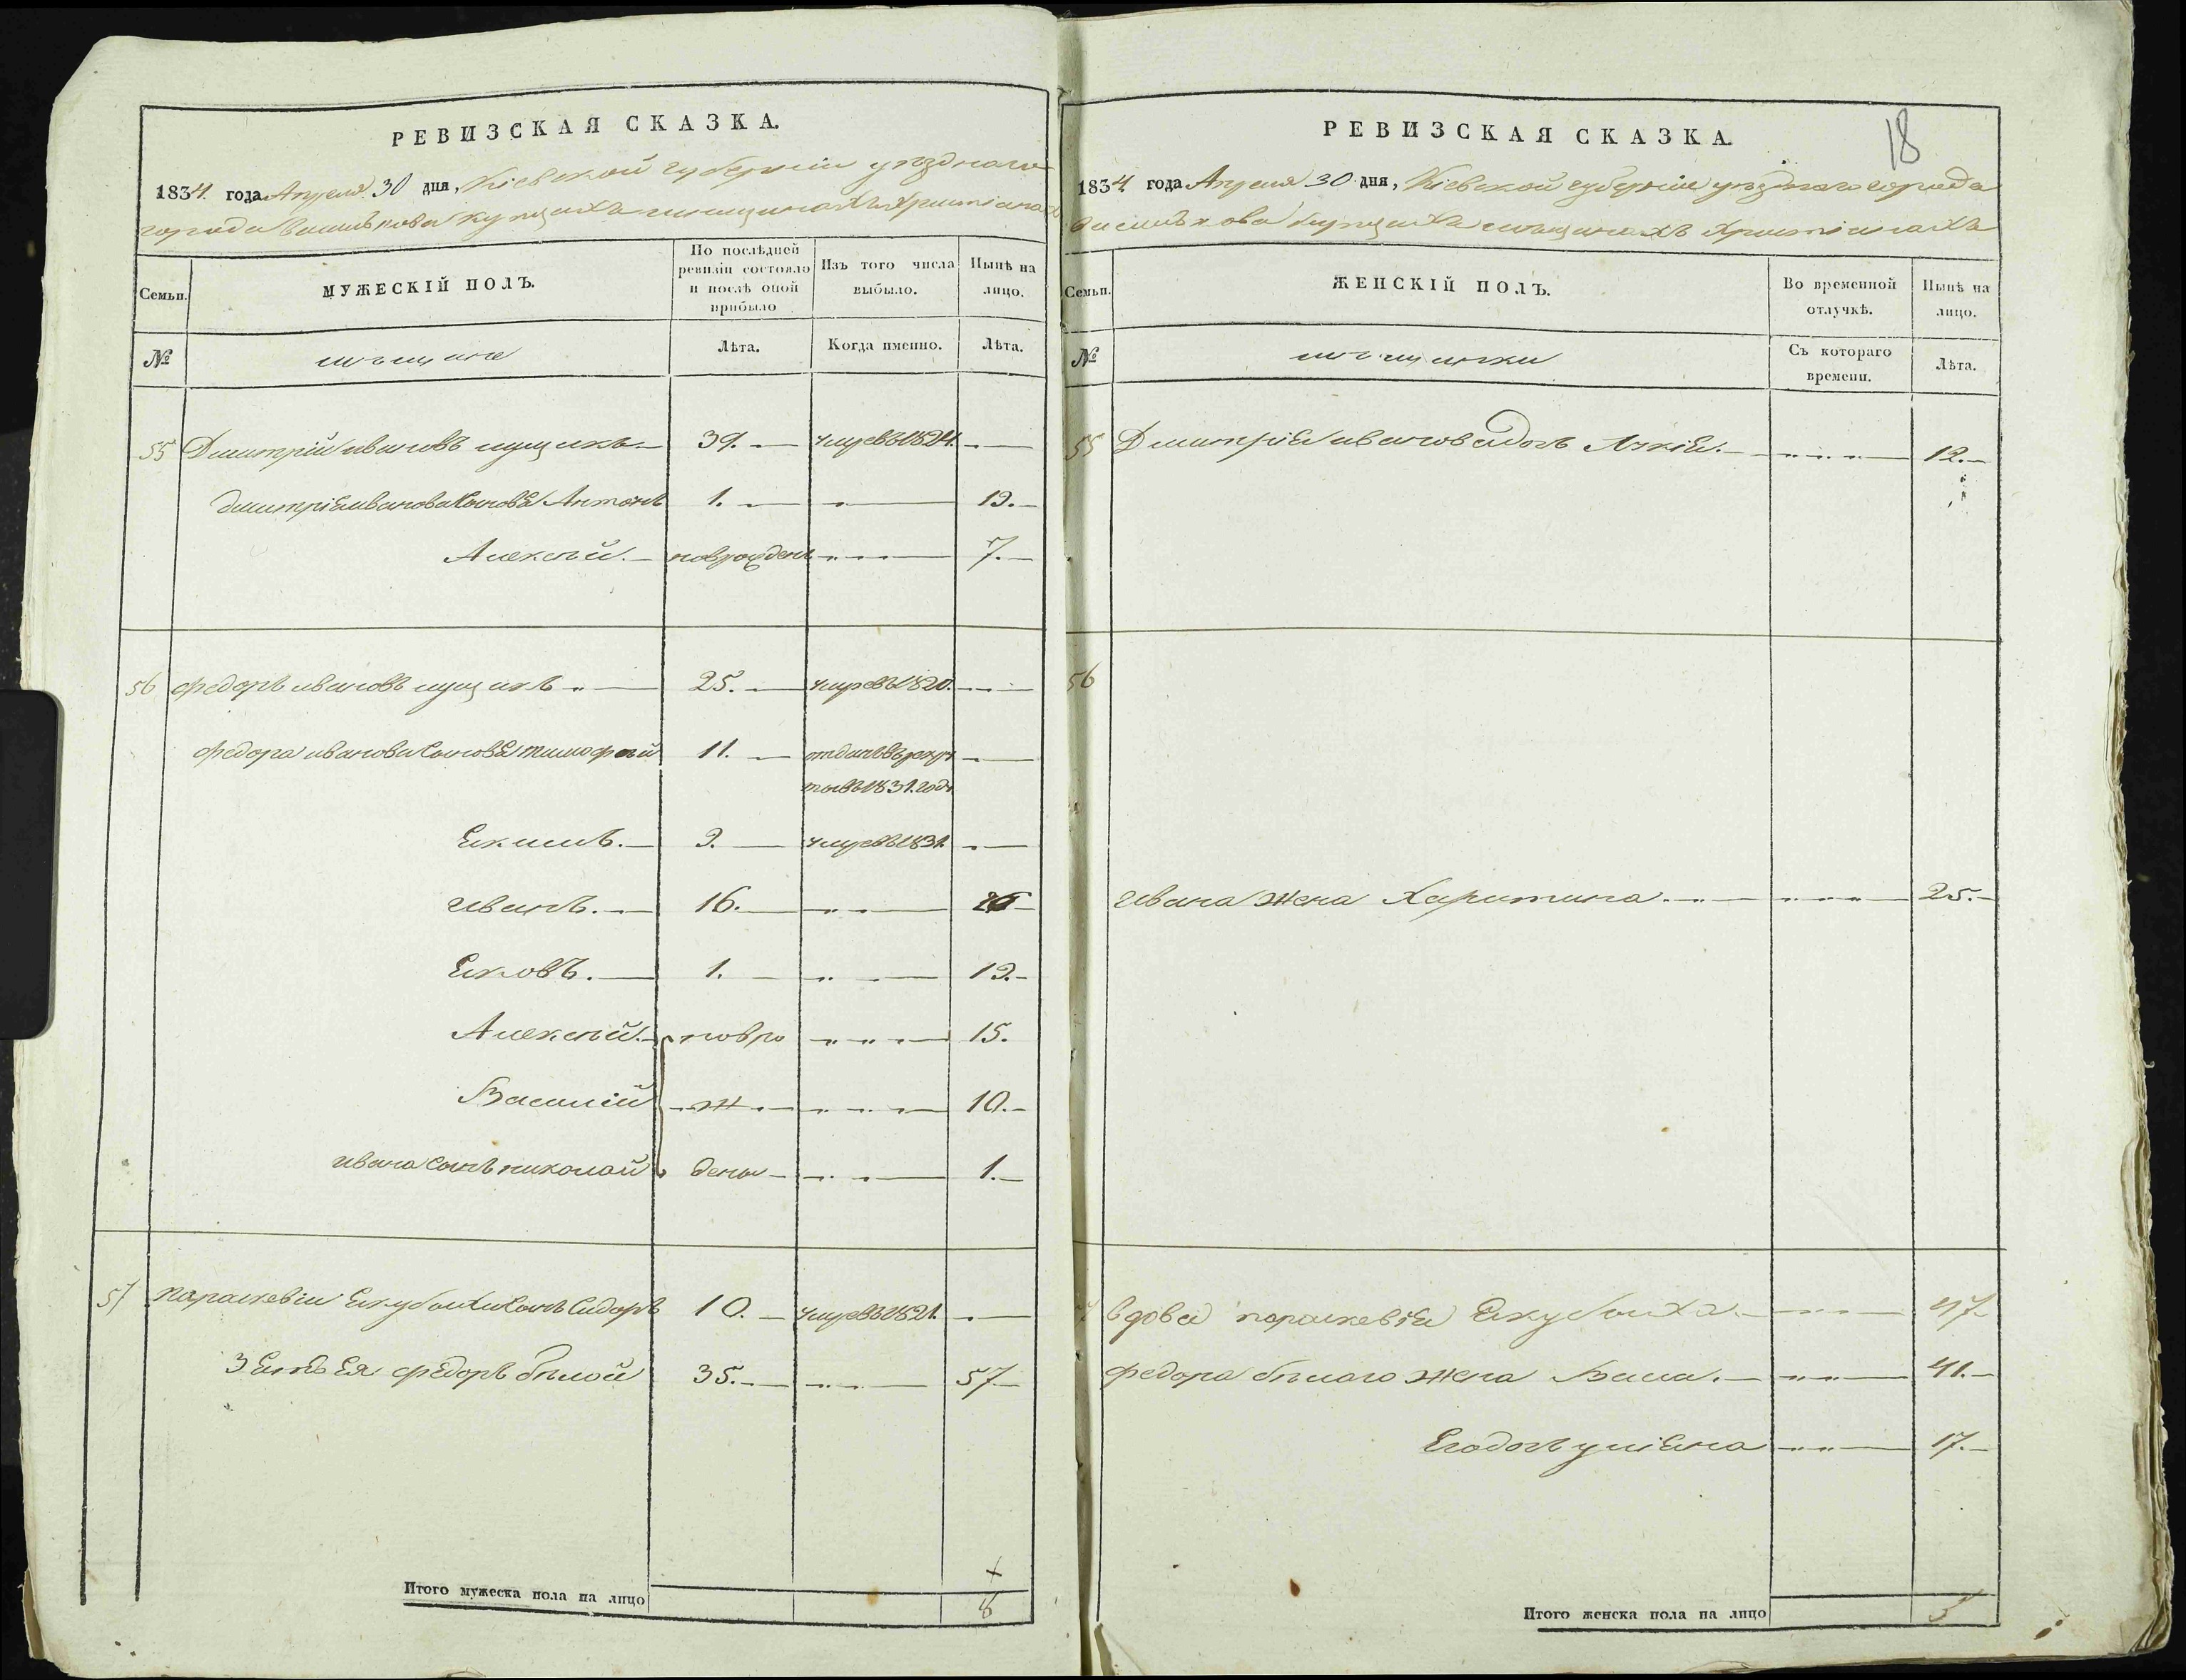 РЕВИЗСКАЯ СКАЗКА.
1834 года Апреля 30 дня, Кіевской губерніи уѣзднаго
города Василькова купцахъ мещанахъ христіанахъ
Семьи.
МУЖЕСКІЙ ПОЛЪ.
По послѣдней ревизіи состояло и послѣ оной прибыло
Изъ того числа выбыло.
Нынѣ на лицо.
№
мещане
Лѣта.
Когда именно.
Лѣта.
55 Дмитрій ивановъ 39. умревъ1824.
дмитрія иванова сыновья Антонъ 1. 19.
Алексѣй. новрожденъ 7.
56 федоръ ивановъ 25. умревъ1820.
федора иванова сыновья тимофей 11. отданъ въ рекру
ты въ 1831. годе
Екимъ. 9. умревъ1831.
иванъ. 16.
Яковъ. 1. 19.
Алексѣй. новро 15.
Василій ж 10.
ивана сынъ николай дены 1.
57 параскевіи сынъ Сидоръ 10. умревъ1821.
Зять Ея федоръ бѣлой 35. 57
Итого мужеска пола на лицо 8
18
РЕВИЗСКАЯ СКАЗКА.
1834 года Апреля 30 дня, Кіевской губерніи уѣзднаго города
Василькова купцахъ мещанахъ христіанахъ
Семьи.
ЖЕНСКІЙ ПОЛЪ.
Во временной отлучкѣ.
Нынѣ на лицо.
№
мещанки
Съ котораго времени.
Лѣта.
55 Дмитрія иванова дочь 12.
56
ивана жена Харитина. 25.
вдова параскевія 47
федора бѣлаго жена Васса. 41.
Его дочь уліяна 17.
Итого женска пола на лицо 5